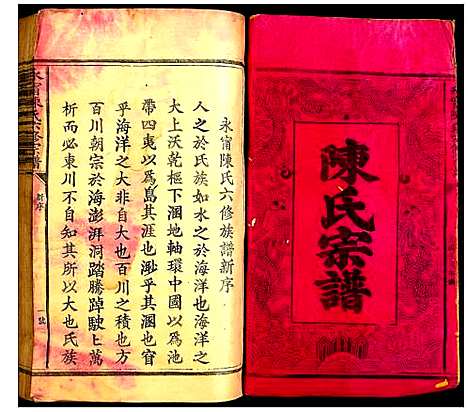 陳氏宗譜
永甯陳氏六修族譜新序
人之於氏族如水之於海洋也海洋之
大上沃乾樞下涸地軸環中國以為池
帶四夷以為島其涯也渺乎其涸也窅
乎海洋之大非自大也百川之積也方
百川朝宗於海澎湃洞踏騰踔駛上萬
析而必東川不自知其所以大也氏族
永甯陳氏六修宗譜
群序
一號